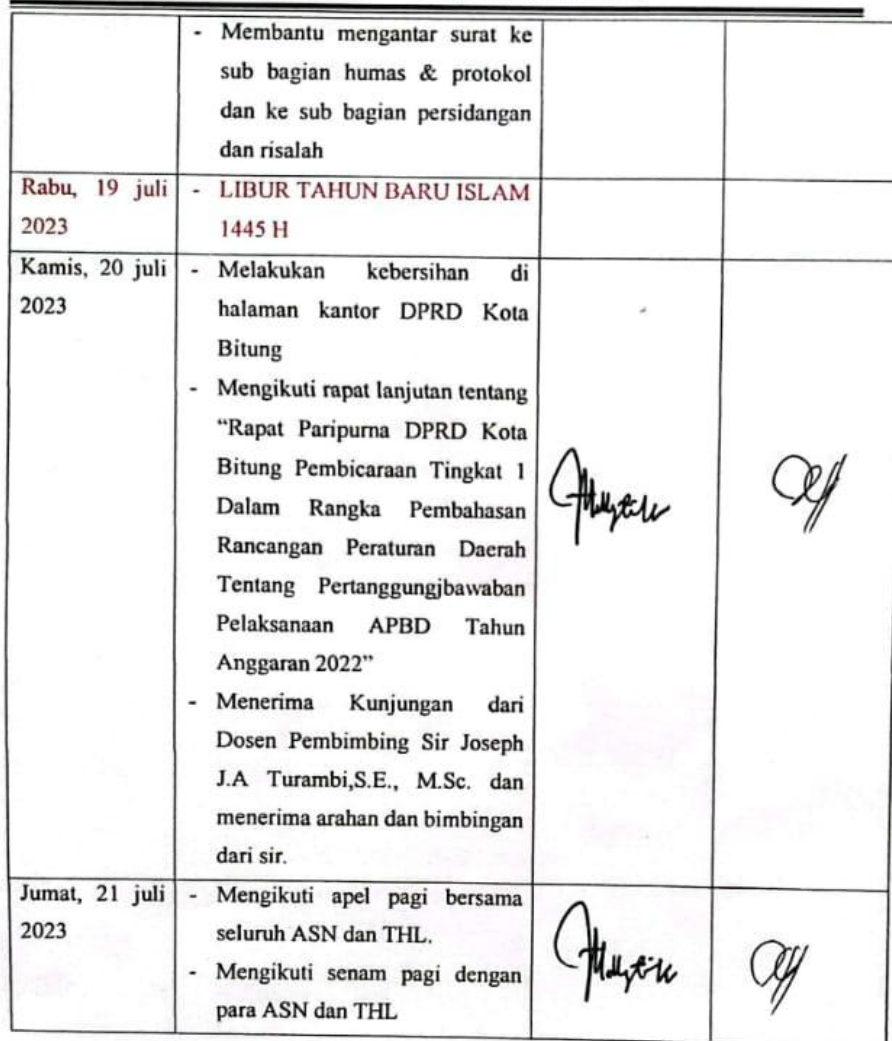 - Membantu mengantar surat ke
sub bagian humas & protokol
dan ke sub bagian persidangan
dan risalah
Rabu, 19 juli
2023
- LIBUR TAHUN BARU ISLAM
1445 H
Kamis, 20 juli
2023
- Melakukan kebersihan di
halaman kantor DPRD Kota
Bitung
- Mengikuti rapat lanjutan tentang
“Rapat Paripurna DPRD Kota
Bitung Pembicaraan Tingkat 1
Dalam Rangka Pembahasan
Rancangan Peraturan Daerah
Tentang Pertanggungjbawaban
Pelaksanaan APBD Tahun
Anggaran 2022”
- Menerima Kunjungan dari
Dosen Pembimbing Sir Joseph
J.A Turambi,S.E., M.Sc. dan
menerima arahan dan bimbingan
dari sir.
Jumat, 21 juli
2023
- Mengikuti apel pagi bersama
seluruh ASN dan THL.
- Mengikuti senam pagi dengan
para ASN dan THL